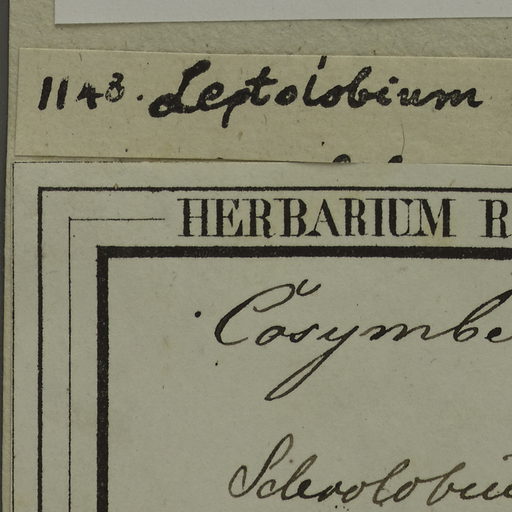 1143. Leptolobium
HERBARIUM R
Cosymbe
Sclerolobiu